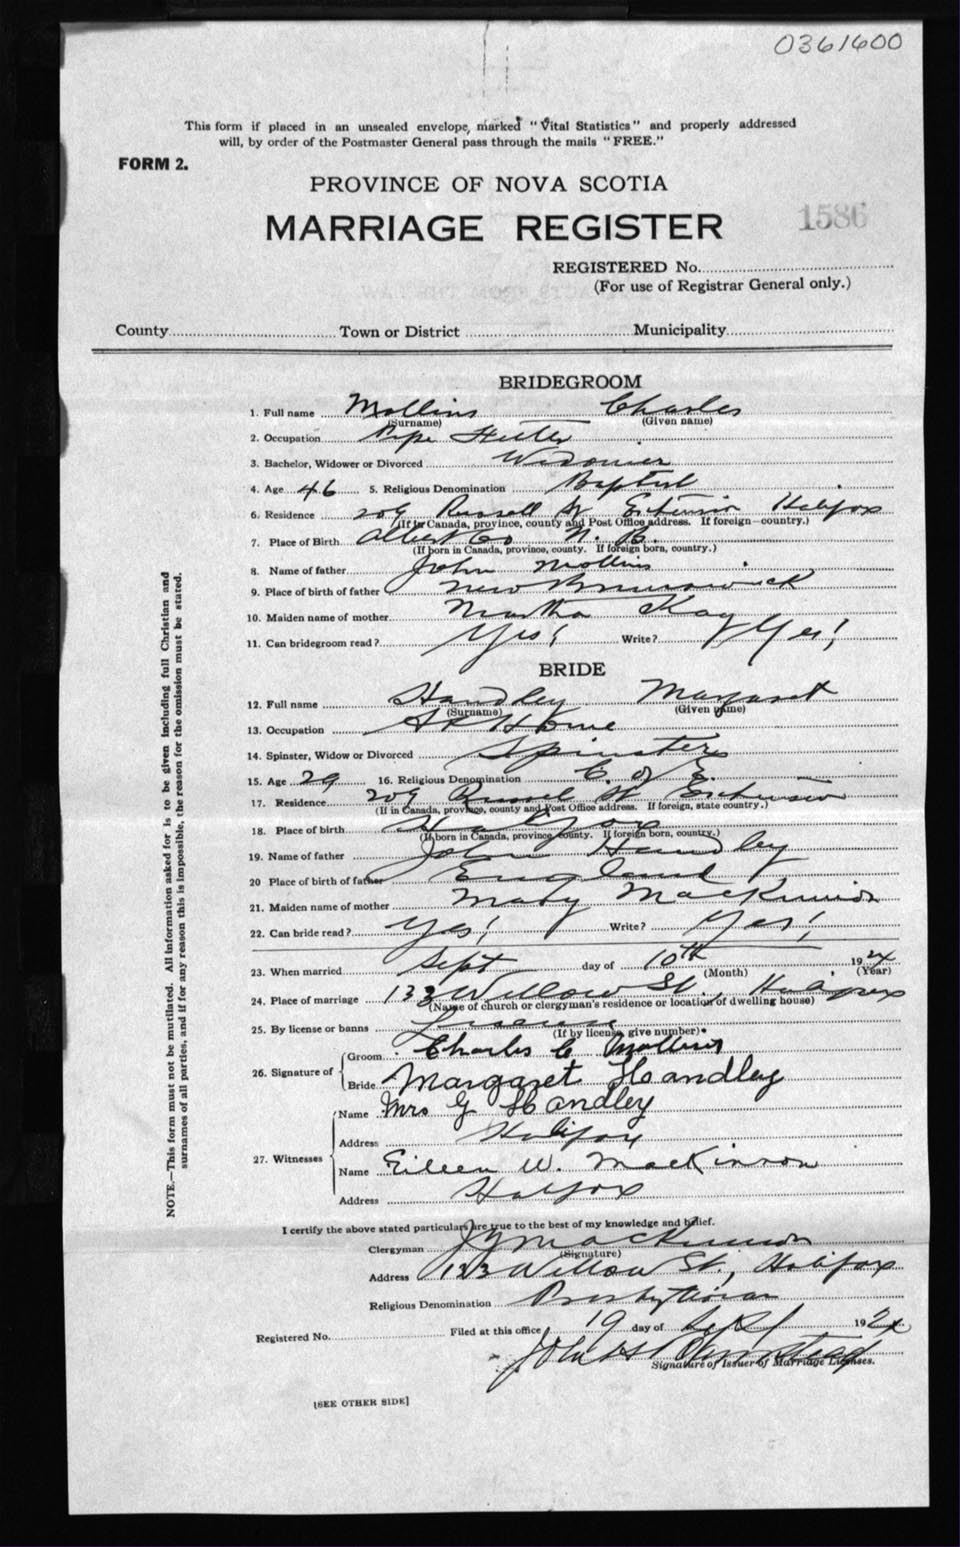 0361600
This form if placed in an unsealed envelope, marked "Vital Statistics" and properly addressed
will, by order of the Postmaster General pass through the mails "FREE."
FORM 2.
PROVINCE OF NOVA SCOTIA
MARRIAGE REGISTER 1586
REGISTERED No.
(For use of Registrar General only.)
County Town or District Municipality
BRIDEGROOM
1. Full name Mollins Charles
(Surname) (Given name)
2. Occupation Pipe Fitter
3. Bachelor, Widower or Divorced Widower
4. Age 46 5. Religious Denomination Baptist
6. Residence 209 Russell St Extension Halifax
(If in Canada, province, county and Post Office address. If foreign—country.)
7. Place of Birth Albert Co N. B.
(If born in Canada, province, county. If foreign born, country.)
8. Name of father John Mollins
9. Place of birth of father New Brunswick
10. Maiden name of mother Martha Kay
11. Can bridegroom read? Yes! Write? Yes!
BRIDE
12. Full name Handley Margaret
(Surname) (Given name)
13. Occupation At Home
14. Spinster, Widow or Divorced Spinster
15. Age 29 16. Religious Denomination C. of E.
17. Residence 209 Russel St Extension
(If in Canada, province, county and Post Office address. If foreign, state country.)
18. Place of birth Halifax
(If born in Canada, province county. If foreign born, country.)
19. Name of father John Handley
20 Place of birth of father England
21. Maiden name of mother Mary MacKinnon
22. Can bride read? Yes! Write? Yes!
23. When married Sept day of 10th 1924
(Month) (Year)
24. Place of marriage 123 Willow St., Halifax
(Name of church or clergyman's residence or location of dwelling house)
25. By license or banns License
(If by license, give number)
26. Signature of
Groom Charles C Mollins
Bride Margaret Handley
27. Witnesses
Name Mrs G Handley
Address Halifax
Name Eileen W. MacKinnon
Address Halifax
I certify the above stated particulars are true to the best of my knowledge and belief.
Clergyman MacKinnon
(Signature)
Address 123 Willow St., Halifax
Religious Denomination Presbyterian
Registered No. Filed at this office 19 day of Sept 1924
John
Signature of Issuer of Marriage Licenses.
[SEE OTHER SIDE]
NOTE.—This form must not be mutilated. All information asked for is to be given including full Christian and
surnames of all parties, and if for any reason this is impossible, the reason for the omission must be stated.